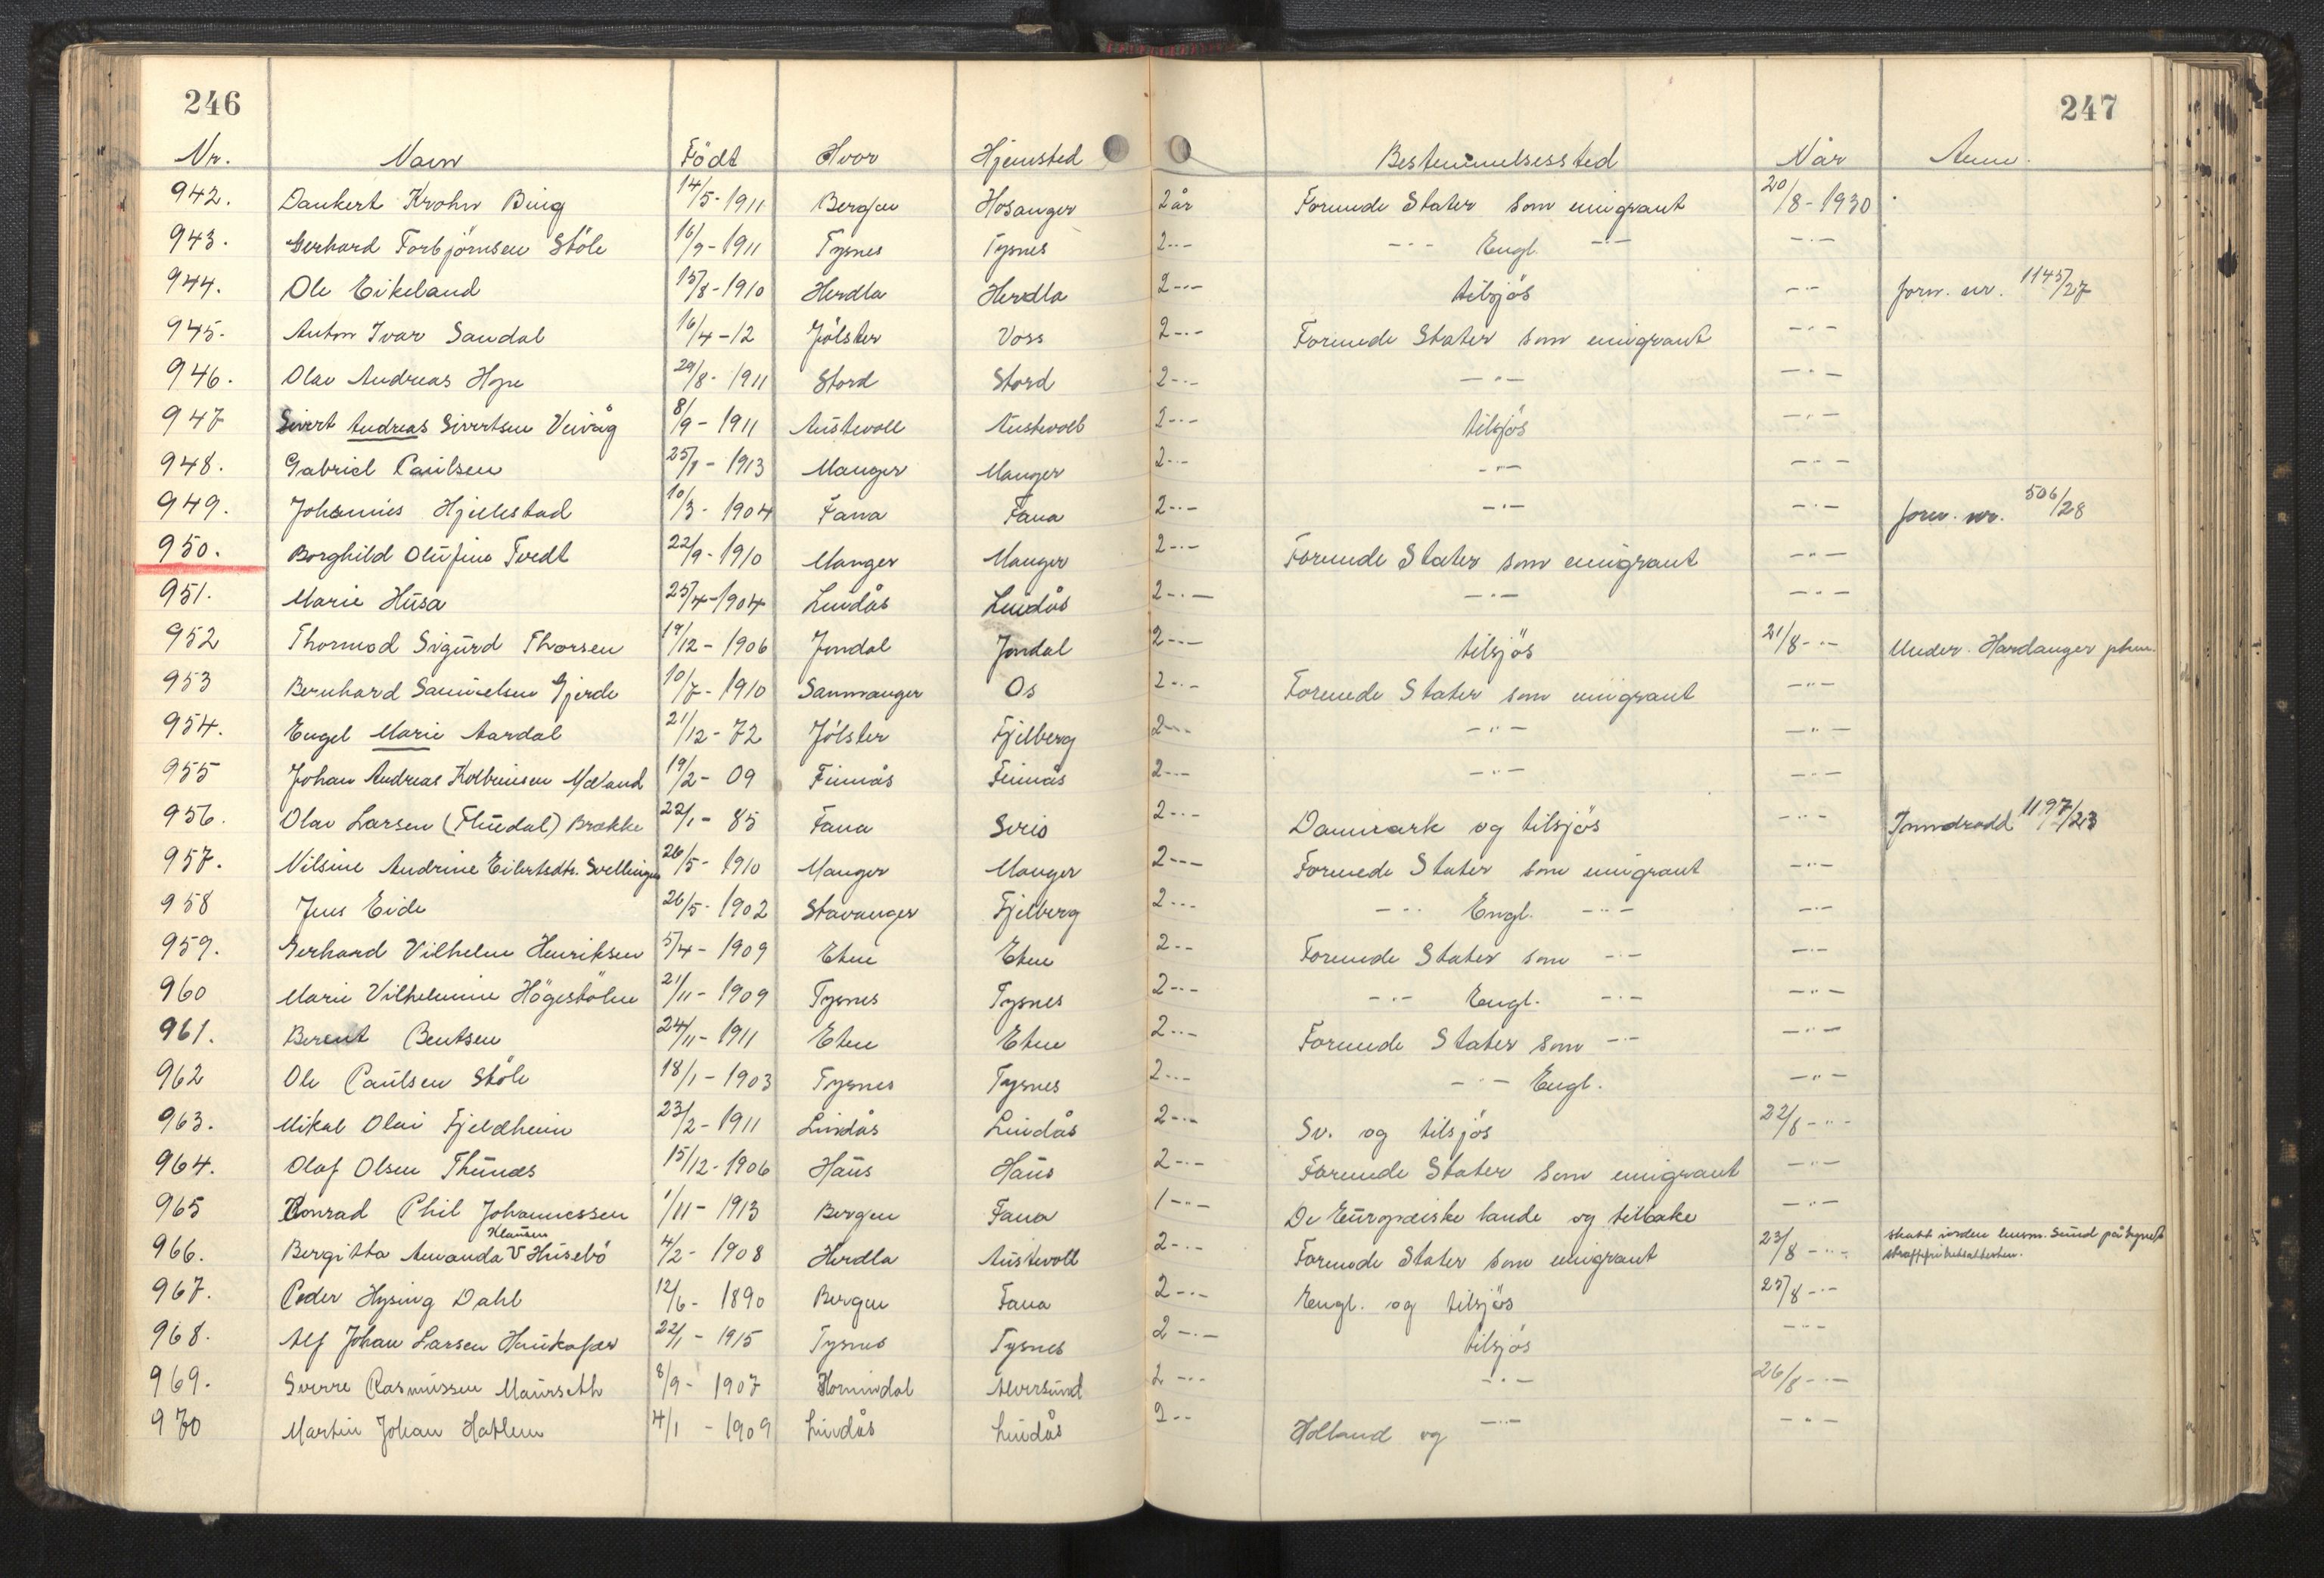 246
247
Nr. Navn Födt Hvor Hjemsted Bestemmelsessted Når Anm.
942. Dankert Krohn Bing 14/5-1911 Bergen Hosanger 2 år Forenede Stater som emigrant 20/8-1930
943. Gerhard Torbjörnsen Stöle 16/9-1911 Tysnes Tysnes 2 -"- -"- Engl. -"- -"-
944. Ole Eikeland 15/8-1910 Herdla Herdla 2 -"- tilsjös -"- forn. nr. 1145/27
945. Anton Ivar Sandal 16/4-12 Jölster Voss 2 -"- Forenede Stater som emigrant -"-
946. Olav Andreas Hope 29/8-1911 Stord Stord 2 -"- -"- -"-
947 Sivert Andreas Sivertsen Veivåg 8/9-1911 Austevoll Austevoll 2 -"- tilsjös -"-
948. Gabriel Paulsen 25/1-1913 Manger Manger 2 -"- -"- -"-
949. Johannes Hjellestad 10/3-1904 Fana Fana 2 -"- -"- -"- forn. nr. 506/28
950. Borghild Olufine Tvedt 22/9-1910 Manger Manger 2 -"- Forenede Stater som emigrant -"-
951. Marie Husa 25/4-1904 Lindås Lindås 2 -"- -"- -"-
952 Thormod Sigurd Thorsen 19/12-1906 Jondal Jondal 2 -"- tilsjös 21/8 -"- Under. Hardanger
953 Bernhard Samuelsen Gjerde 10/7-1910 Samnanger Os 2 -"- Forenede Stater som emigrant -"-
954. Engel Marie Aardal 21/12-72 Jölster Fjelberg 2 -"- -"- -"-
955 Johan Andreas Kolbeinsen Mæland 19/2-09 Finnås Finnås 2 -"- -"- -"-
956. Olav Larsen (Flúedal) Brække 22/1-85 Fana 2 -"- Danmark og tilsjös -"- Inndradd 1197/23
957. Nilsine Andrine Eilertsdtr. Svellingen 26/5-1910 Manger Manger 2 -"- Forenede Stater som emigrant -"-
958 Jens Eide 26/5-1902 Stavanger Fjelberg 2 -"- -"- Engl. -"- -"-
959. Gerhard Vilhelm Henriksen 5/4-1909 Etne Etne 2 -"- Forenede Stater som -"- -"-
960 Marie Vilhelmine Högestöle 21/11-1909 Tysnes Tysnes 2 -"- -"- Engl. -"- -"-
961. Berent Bentsen 24/11-1911 Etne Etne 2 -"- Forenede Stater som -"- -"-
962 Ole Paulsen Stöle 18/1-1903 Tysnes Tysnes 2 -"- -"- Engl. -"-
963. Mikal Olai Fjeldheim 23/2-1911 Lindås Lindås 2 -"- Sv. og tilsjös 22/8 -"-
964. Olaf Olsen Thunæs 15/12-1906 Haus Haus 2 -"- Forenede Stater som emigrant -"-
965 Konrad Phil Johannessen 1/11-1913 Bergen Fana 1 -"- De Europæiske lande og tilbake -"-
Klausen
966. Bergitta Amanda V Husebö 4/2-1908 Herdla Austevoll 2 -"- Forenede Stater som emigrant 23/8 -"- skatt iorden lensm. Sund påtegnet
967. Peder Hysing Dahl 12/6-1890 Bergen Fana 2 -"- Engl. og tilsjös 25/8 -"-
968. Alf Johan Larsen 22/1-1915 Tysnes Tysnes 2 -"- tilsjös -"-
969. Sverre Rasmussen Maurseth 8/9-1907 Hornindal Alversund 2 -"- -"- 26/8 -"-
970 Martin Johan Hatlem 4/1-1909 Lindås Lindås 2 -"- Holland og -"- -"-